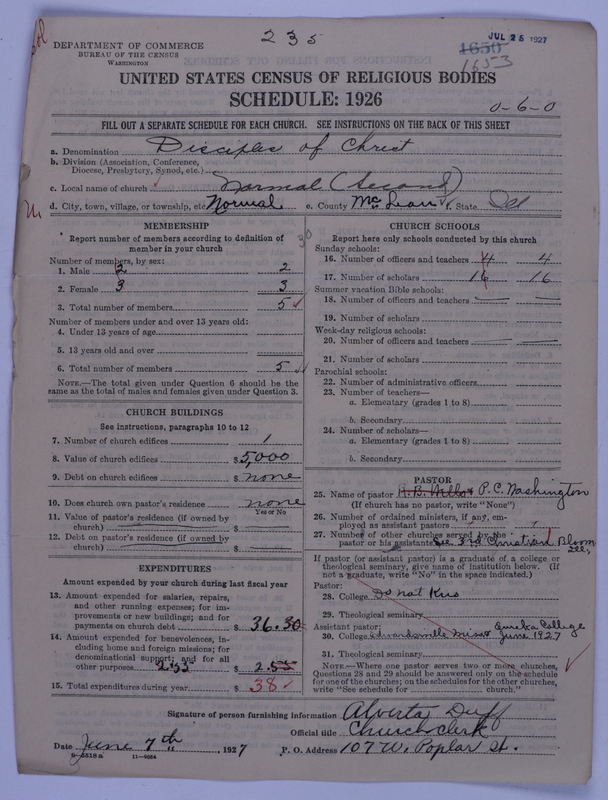 235
JUL 25 1927
1650
1653
DEPARTMENT OF COMMERCE
BUREAU OF THE CENSUS
WASHINGTON
UNITED STATES CENSUS OF RELIGIOUS BODIES
SCHEDULE: 1926
0-6-0
FILL OUT A SEPARATE SCHEDULE FOR EACH CHURCH. SEE INSTRUCTIONS ON THE BACK OF THIS SHEET
a. Denomination Disciples of Christ
b. Division (Association, Conference,
Diocese, Presbytery, Synod, etc.)
c. Local name of church Normal (Second)
d. City, town, village, or township, etc. Normal e. County McLean f. State Ill
MEMBERSHIP
Report number of members according to definition of
member in your church
Number of members, by sex:
1. Male 2 2
2. Female 3 3
3. Total number of members 5
Number of members under and over 13 years old:
4. Under 13 years of age
5. 13 years old and over
6. Total number of members 5
NOTE.—The total given under Question 6 should be the
same as the total of males and females given under Question 3.
CHURCH BUILDINGS
See instructions, paragraphs 10 to 12
7. Number of church edifices 1
8. Value of church edifices $ 5,000
9. Debt on church edifices $ none
10. Does church own pastor's residence none
Yes or No
11. Value of pastor's residence (if owned by
church) $
12. Debt on pastor's residence (if owned by
church) $
EXPENDITURES
Amount expended by your church during last fiscal year
13. Amount expended for salaries, repairs,
and other running expenses; for im-
provements or new buildings; and for
payments on church debt $ 36.30
14. Amount expended for benevolences, in-
cluding home and foreign missions; for
denominational support; and for all
other purposes 2.55 $ 2.55
15. Total expenditures during year $ 38
CHURCH SCHOOLS
Report here only schools conducted by this church
Sunday schools:
16. Number of officers and teachers 4 4
17. Number of scholars 16 16
Summer vacation Bible schools:
18. Number of officers and teachers
19. Number of scholars
Week-day religious schools:
20. Number of officers and teachers
21. Number of scholars
Parochial schools:
22. Number of administrative officers
23. Number of teachers—
a. Elementary (grades 1 to 8)
b. Secondary
24. Number of scholars—
a. Elementary (grades 1 to 8)
b. Secondary
PASTOR
25. Name of pastor P. C. Washington
(If church has no pastor, write "None")
26. Number of ordained ministers, if any, em-
ployed as assistant pastors
27. Number of other churches served by the
pastor or his assistants See 3rd Christian Bloom
Ill.
If pastor (or assistant pastor) is a graduate of a college or
theological seminary, give name of institution below. (If
not a graduate, write "No" in the space indicated.)
Pastor:
28. College Do not Kno
29. Theological seminary
Assistant pastor: Eureka College
30. College June 1927
31. Theological seminary
NOTE.—Where one pastor serves two or more churches,
Questions 28 and 29 should be answered only on the schedule
for one of the churches; on the schedules for the other churches,
write "See schedule for church."
Signature of person furnishing information Alverta Duff
Official title Church Clerk
Date June 7th, 1927 P. O. Address 107 W. Poplar St.
11-9684